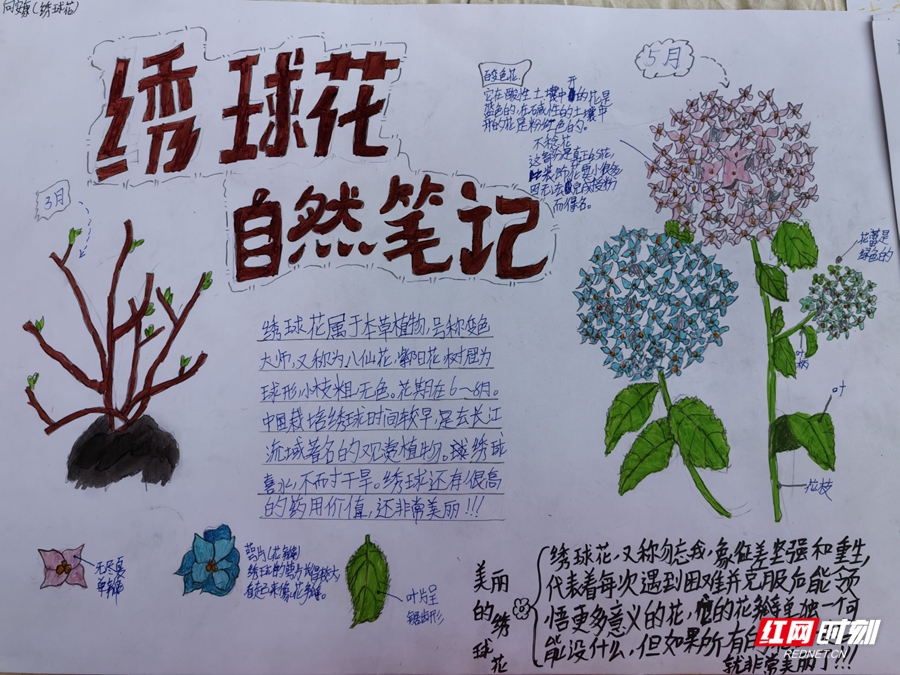 (绣球花)
绣球花
自然笔记
3月
5月
百变色花:
它在酸性土壤中开的花是
蓝色的,在碱性的土壤中
开的花是粉红色的。
不稔花
这部分是真正的花,
而得名。
花蕾是
绿色的
绣球花属于本草植物,号称变色
大师,又称为八仙花,紫阳花,树冠为
球形,小枝粗,无色。花期在6~8月。
中国栽培绣球时间较早,是去长江
流域著名的观赏植物。绣球
喜水,不耐干旱。绣球还有很高
的药用价值,还非常美丽!!!
叶柄
叶
花枝
无尽夏
单瓣
萼片(花瓣)
叶片呈
锯齿形
美丽的绣球花
绣球花,又称勿忘我,象征着坚强和重生,
代表着每次遇到困难并克服后能领
悟更多意义的花,他的花瓣单独一个可
能没什么,但如果所有
就非常美丽了!!!
红网时刻
REDNET.CN